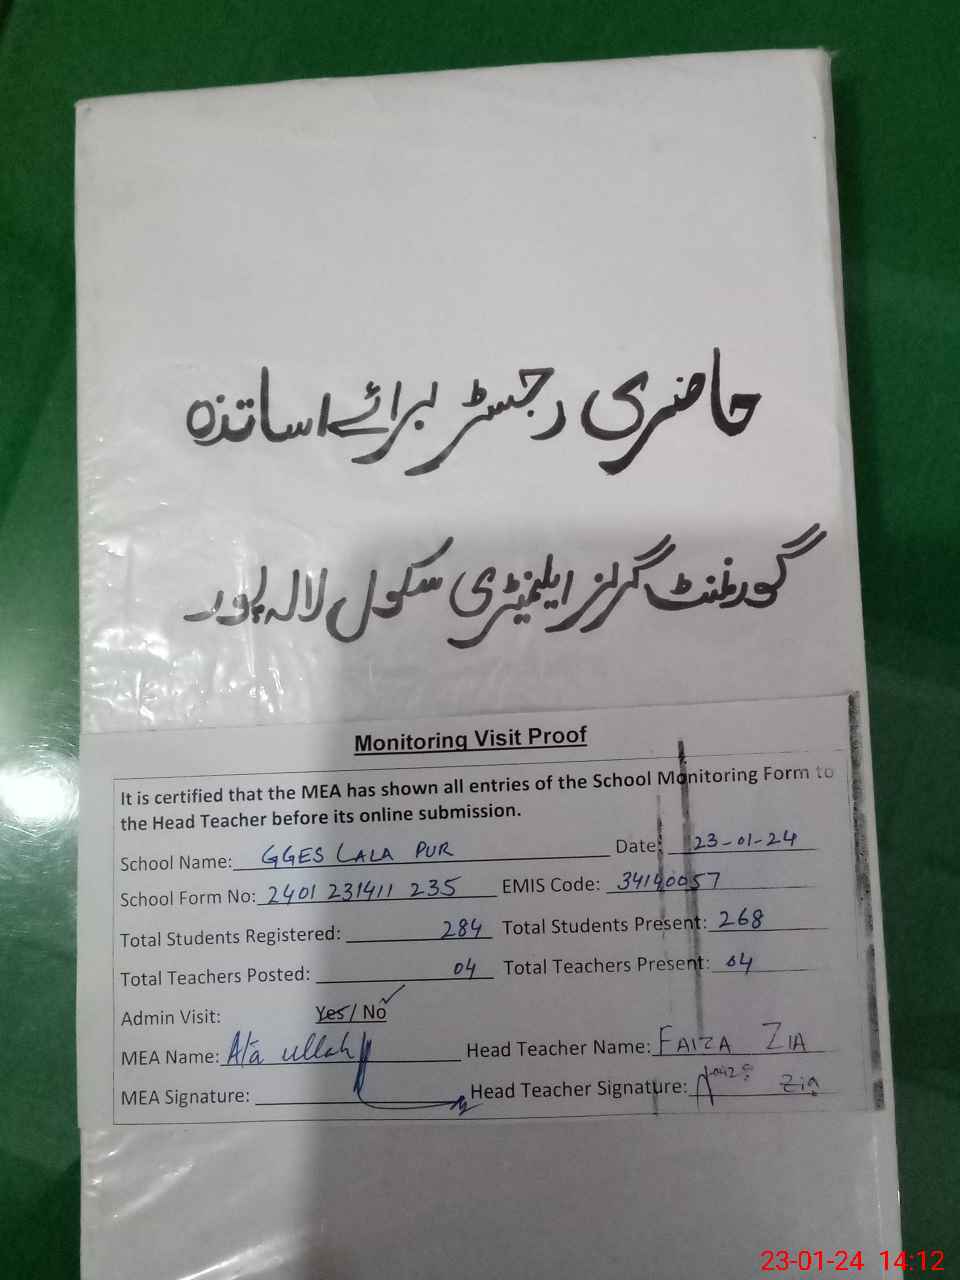 حاضری رجسٹر برائے اساتذہ
گورنمنٹ گرلز ایلیمنٹری سکول لالہ پور
Monitoring Visit Proof
It is certified that the MEA has shown all entries of the School Monitoring Form to
the Head Teacher before its online submission.
School Name: GGES LALA PUR Date: 23-01-24
School Form No: 2401 231411 235 EMIS Code: 34140057
Total Students Registered: 284 Total Students Present: 268
Total Teachers Posted: 04 Total Teachers Present: 04
Admin Visit: Yes/ No ✓
MEA Name: Ata ullah Head Teacher Name: FAIZA ZIA
MEA Signature: Head Teacher Signature: Zia
23-01-24 14:12